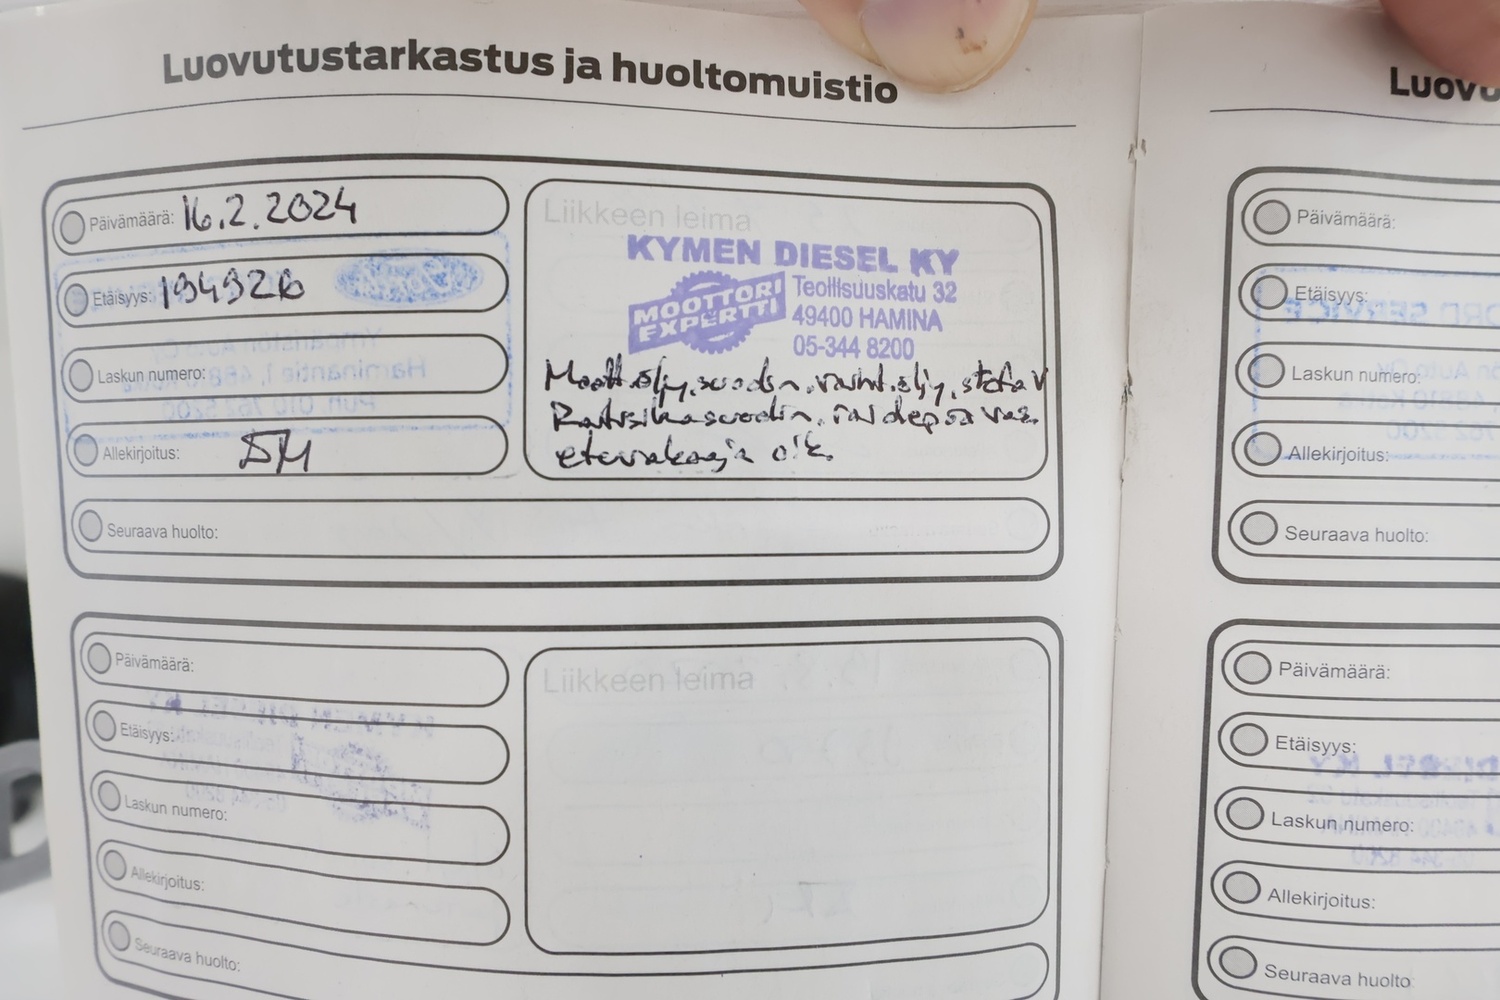 Luovutustarkastus ja huoltomuistio
Päivämäärä: 16.2.2024
Etäisyys: 194926
Laskun numero:
Allekirjoitus:
Seuraava huolto:
Liikkeen leima
KYMEN DIESEL KY
MOOTTORI
EXPERTTI
Teollisuuskatu 32
49400 HAMINA
05-344 8200
Moott.öljy, suodin, vaiht.öljy,
Raitisilmasuodin,
eturakseja oik.
Päivämäärä:
Etäisyys:
Laskun numero:
Allekirjoitus:
Seuraava huolto:
Liikkeen leima
Luovu
Päivämäärä:
Etäisyys:
Laskun numero:
Allekirjoitus:
Seuraava huolto:
Päivämäärä:
Etäisyys:
Laskun numero:
Allekirjoitus:
Seuraava huolto: